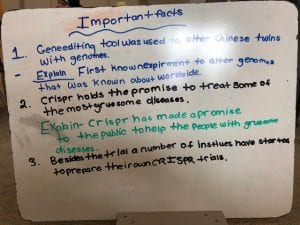 Important facts
1. Geneediting tool was used to alter Chinese twins
with genomes.
- Explain First known expirment to alter genomes
that was known about worldwide.
2. Crispr holds the promise to treat some of
the most gruesome diseases.
Explain- Crispr has made a promise
to the public to help the people with gruesome
diseases.
3. Besides the trial a number of have started
to prepare their own CRISPR trials.